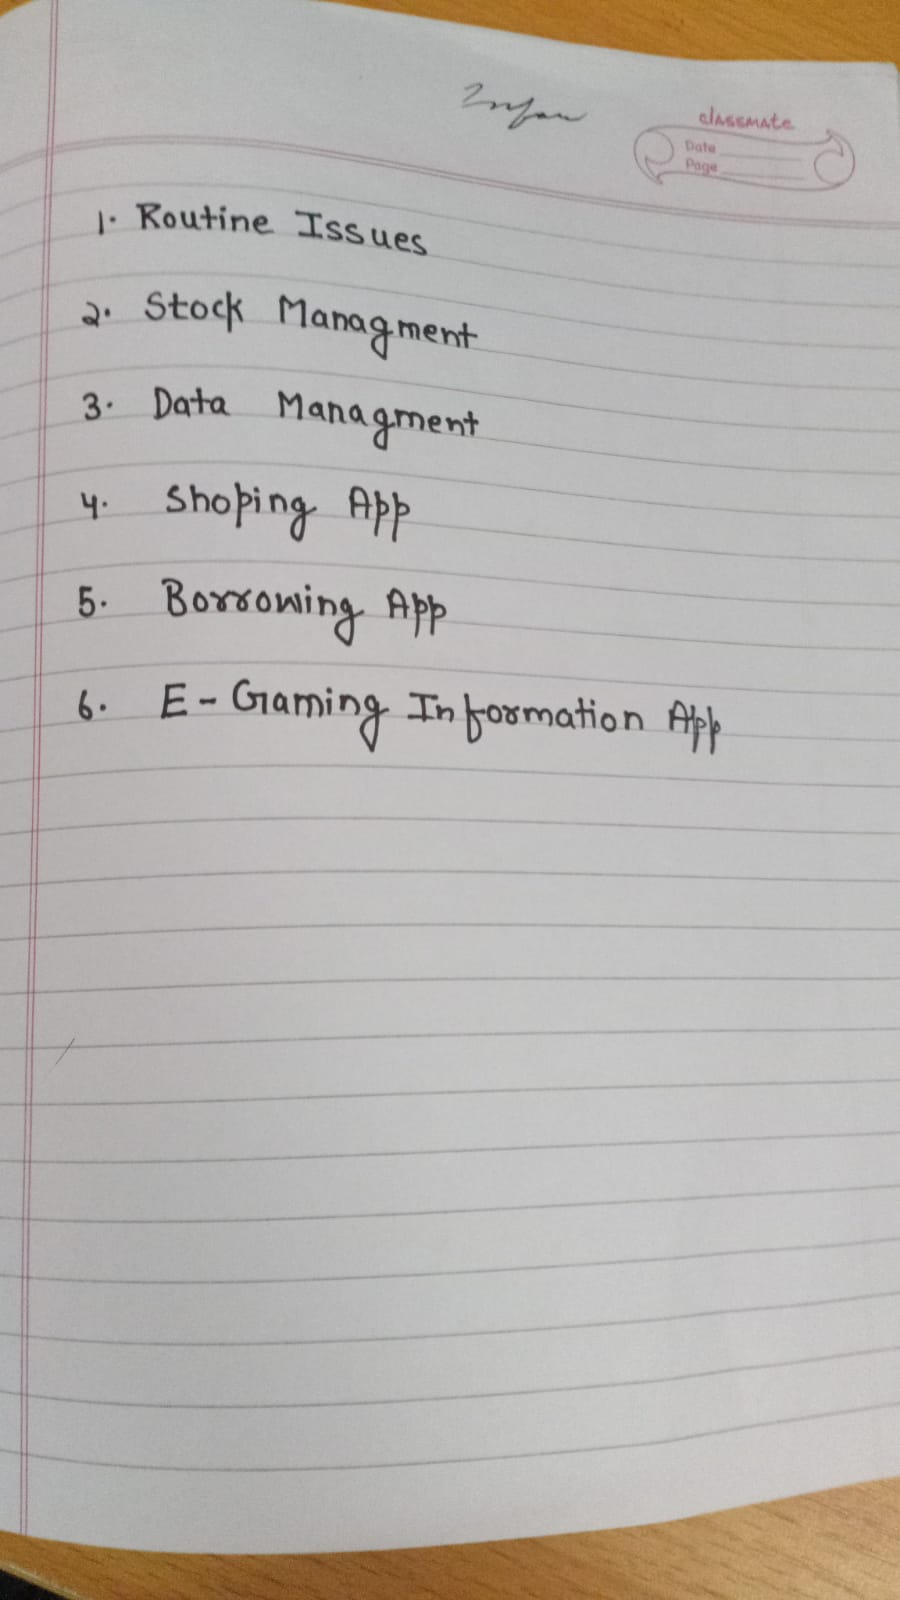 classmate
Date
Page
1. Routine Issues
2. Stock Managment
3. Data Managment
4. Shoping App
5. Borrowing App
6. E-Gaming Information App